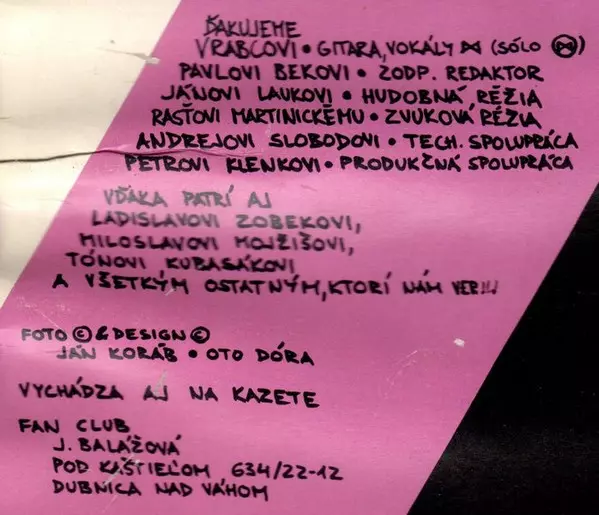 ĎAKUJEME
VRABCOVI • GITARA, VOKÁLY ⋈ (SÓLO ⋈)
PAVLOVI BEKOVI • ZODP. REDAKTOR
JÁNOVI LAUKOVI • HUDOBNÁ RÉŽIA
RASŤOVI MARTINICKÉMU • ZVUKOVÁ RÉŽIA
ANDREJOVI SLOBODOVI • TECH. SPOLUPRÁCA
PETROVI KLENKOVI • PRODUKČNÁ SPOLUPRÁCA
VĎAKA PATRÍ AJ
LADISLAVOVI ZOBEKOVI,
MILOSLAVOVI MOJŽIŠOVI,
TÓNOVI KUBASÁKOVI
A VŠETKÝM OSTATNÝM, KTORÍ NÁM VER!!!
FOTO © & DESIGN ©
JÁN KORÁB • OTO DÓRA
VYCHÁDZA AJ NA KAZETE
FAN CLUB
J. BALÁŽOVÁ
POD KAŠTIEĽOM 634/22-12
DUBNICA NAD VÁHOM